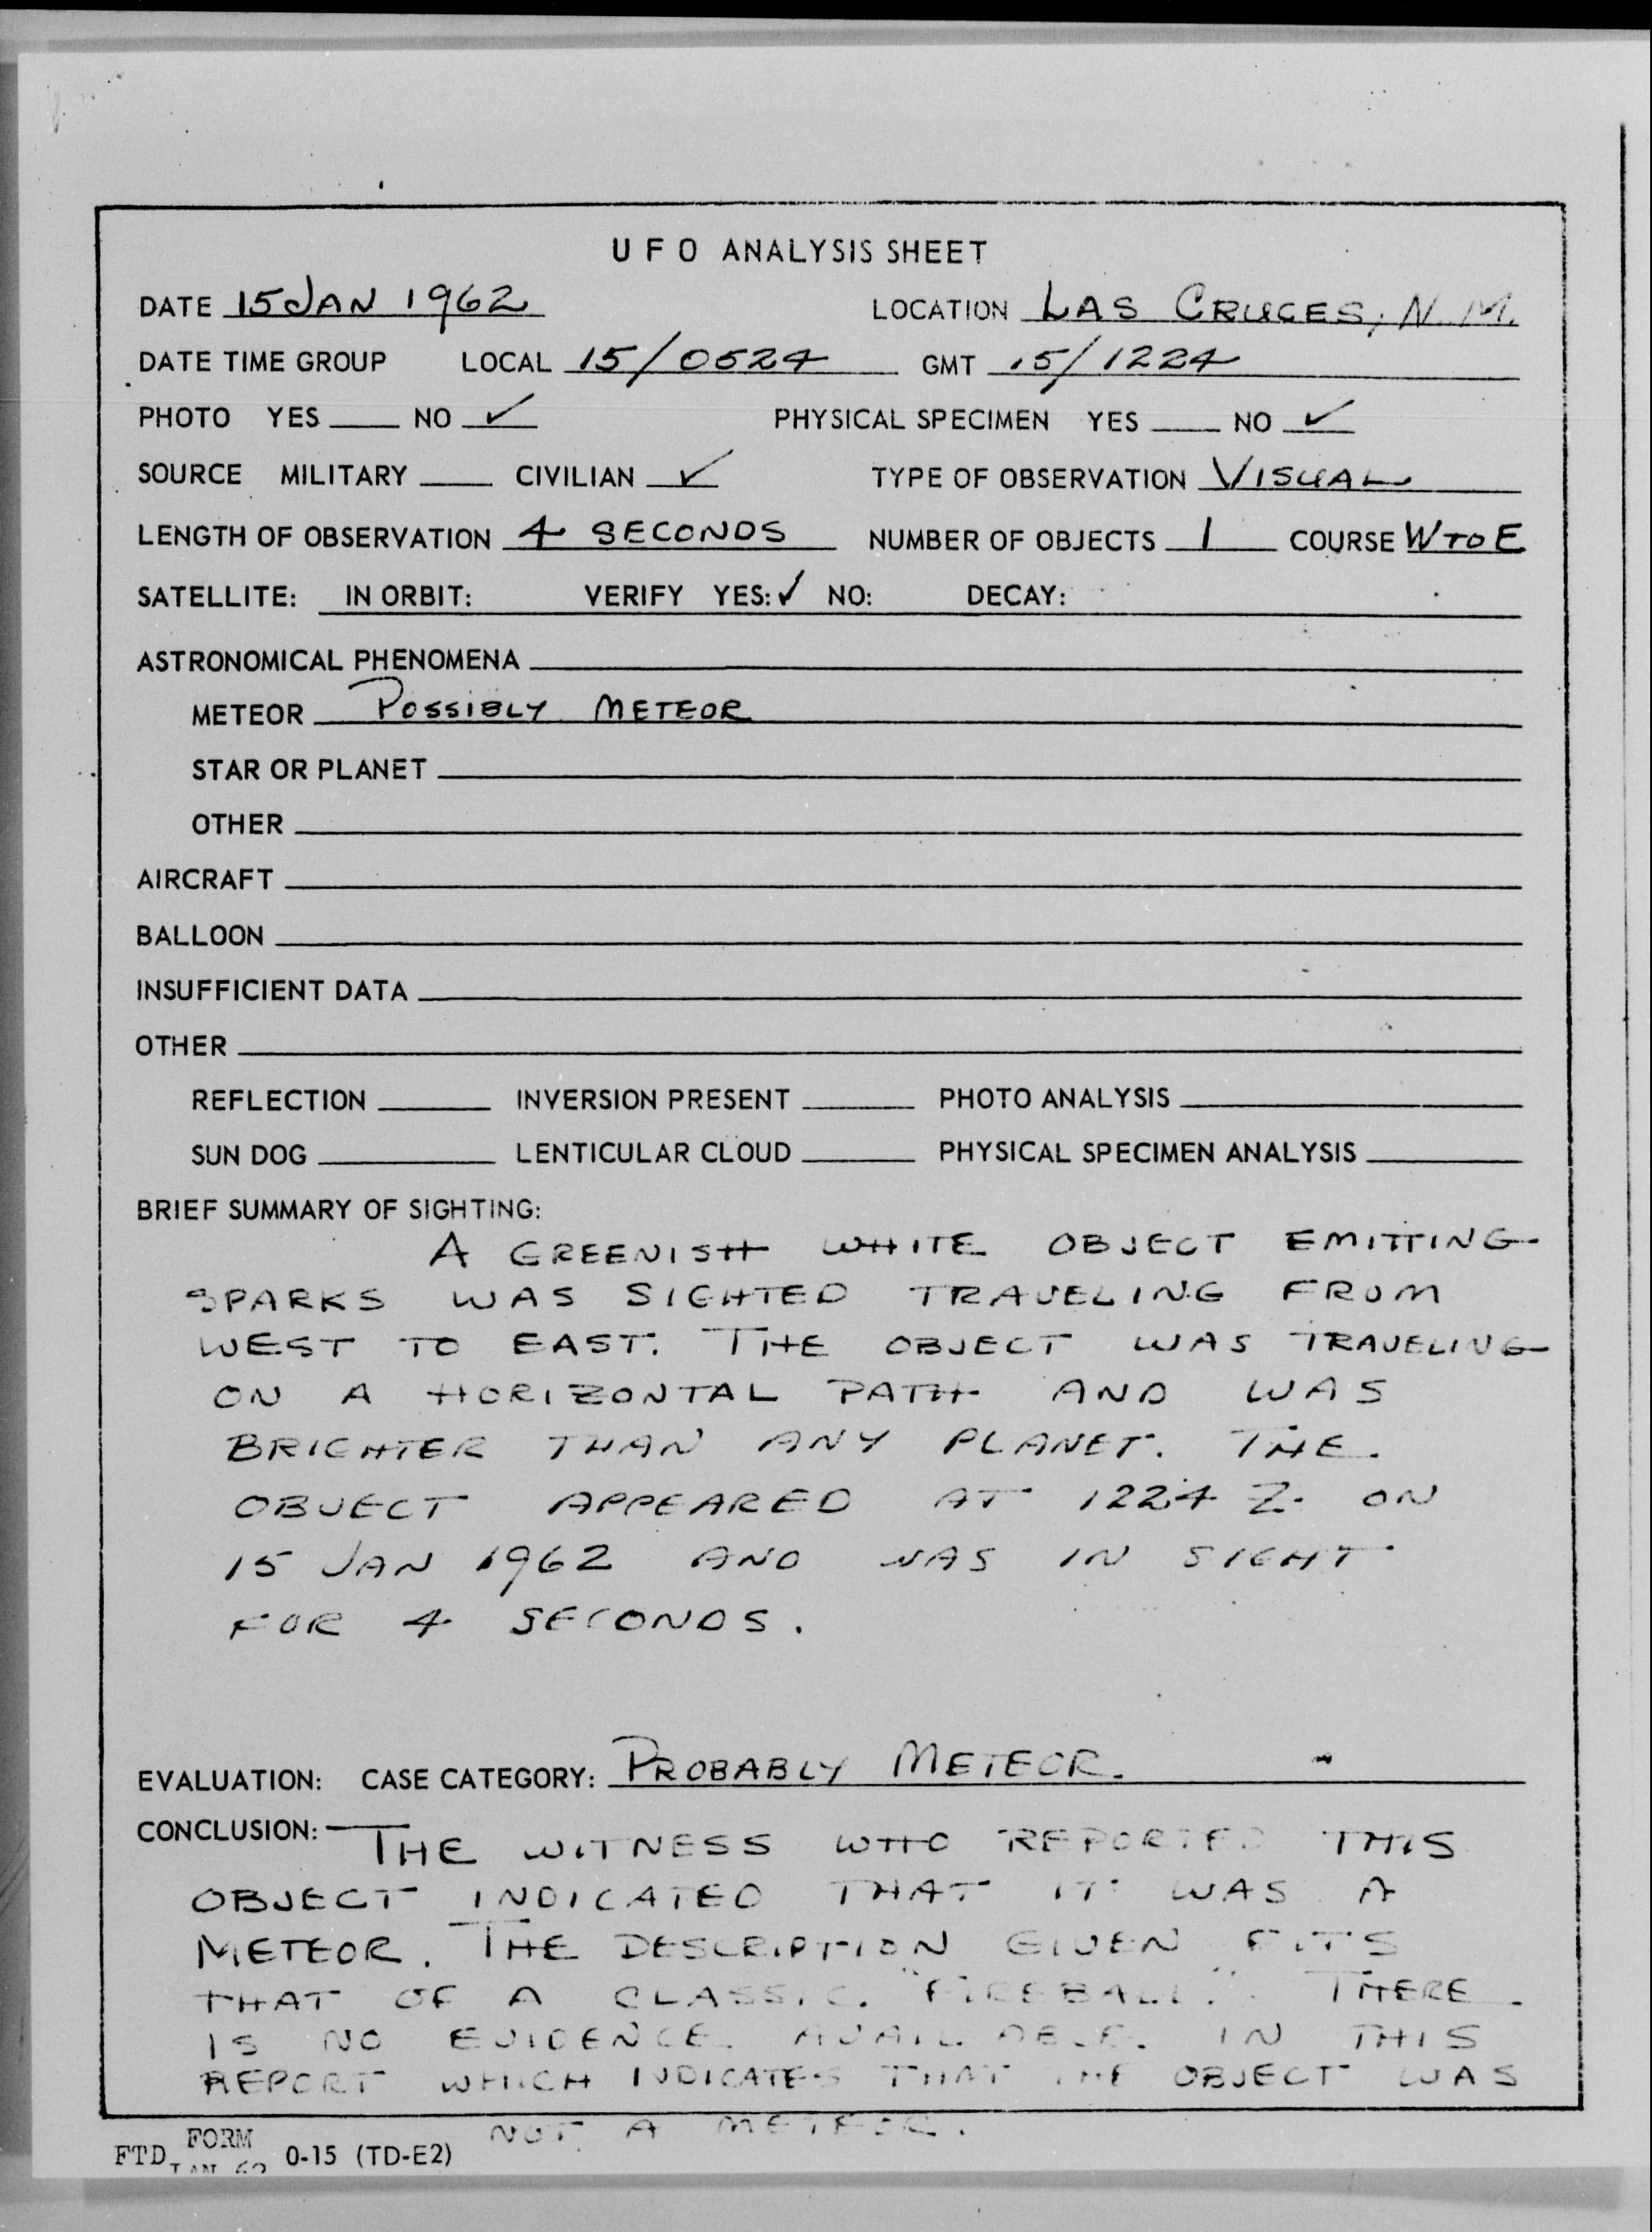 UFO ANALYSIS SHEET
DATE 15 JAN 1962 LOCATION LAS CRUCES, N.M.
DATE TIME GROUP LOCAL 15/0524 GMT 15/1224
PHOTO YES ____ NO ✓ PHYSICAL SPECIMEN YES ____ NO ✓
SOURCE MILITARY ____ CIVILIAN ✓ TYPE OF OBSERVATION VISUAL
LENGTH OF OBSERVATION 4 SECONDS NUMBER OF OBJECTS 1 COURSE W TO E
SATELLITE: IN ORBIT: VERIFY YES: ✓ NO: DECAY:
ASTRONOMICAL PHENOMENA
METEOR POSSIBLY METEOR
STAR OR PLANET
OTHER
AIRCRAFT
BALLOON
INSUFFICIENT DATA
OTHER
REFLECTION INVERSION PRESENT PHOTO ANALYSIS
SUN DOG LENTICULAR CLOUD PHYSICAL SPECIMEN ANALYSIS
BRIEF SUMMARY OF SIGHTING:
A GREENISH WHITE OBJECT EMITTING
SPARKS WAS SIGHTED TRAVELING FROM
WEST TO EAST. THE OBJECT WAS TRAVELING
ON A HORIZONTAL PATH AND WAS
BRIGHTER THAN ANY PLANET. THE
OBJECT APPEARED AT 1224 Z ON
15 JAN 1962 AND WAS IN SIGHT
FOR 4 SECONDS.
EVALUATION: CASE CATEGORY: PROBABLY METEOR.
CONCLUSION: THE WITNESS WHO REPORTED THIS
OBJECT INDICATED THAT IT WAS A
METEOR. THE DESCRIPTION GIVEN FITS
THAT OF A CLASSIC "FIREBALL". THERE
IS NO EVIDENCE AVAILABLE IN THIS
REPORT WHICH INDICATES THAT THE OBJECT WAS
NOT A METEOR.
FTD FORM JAN 62 0-15 (TD-E2)